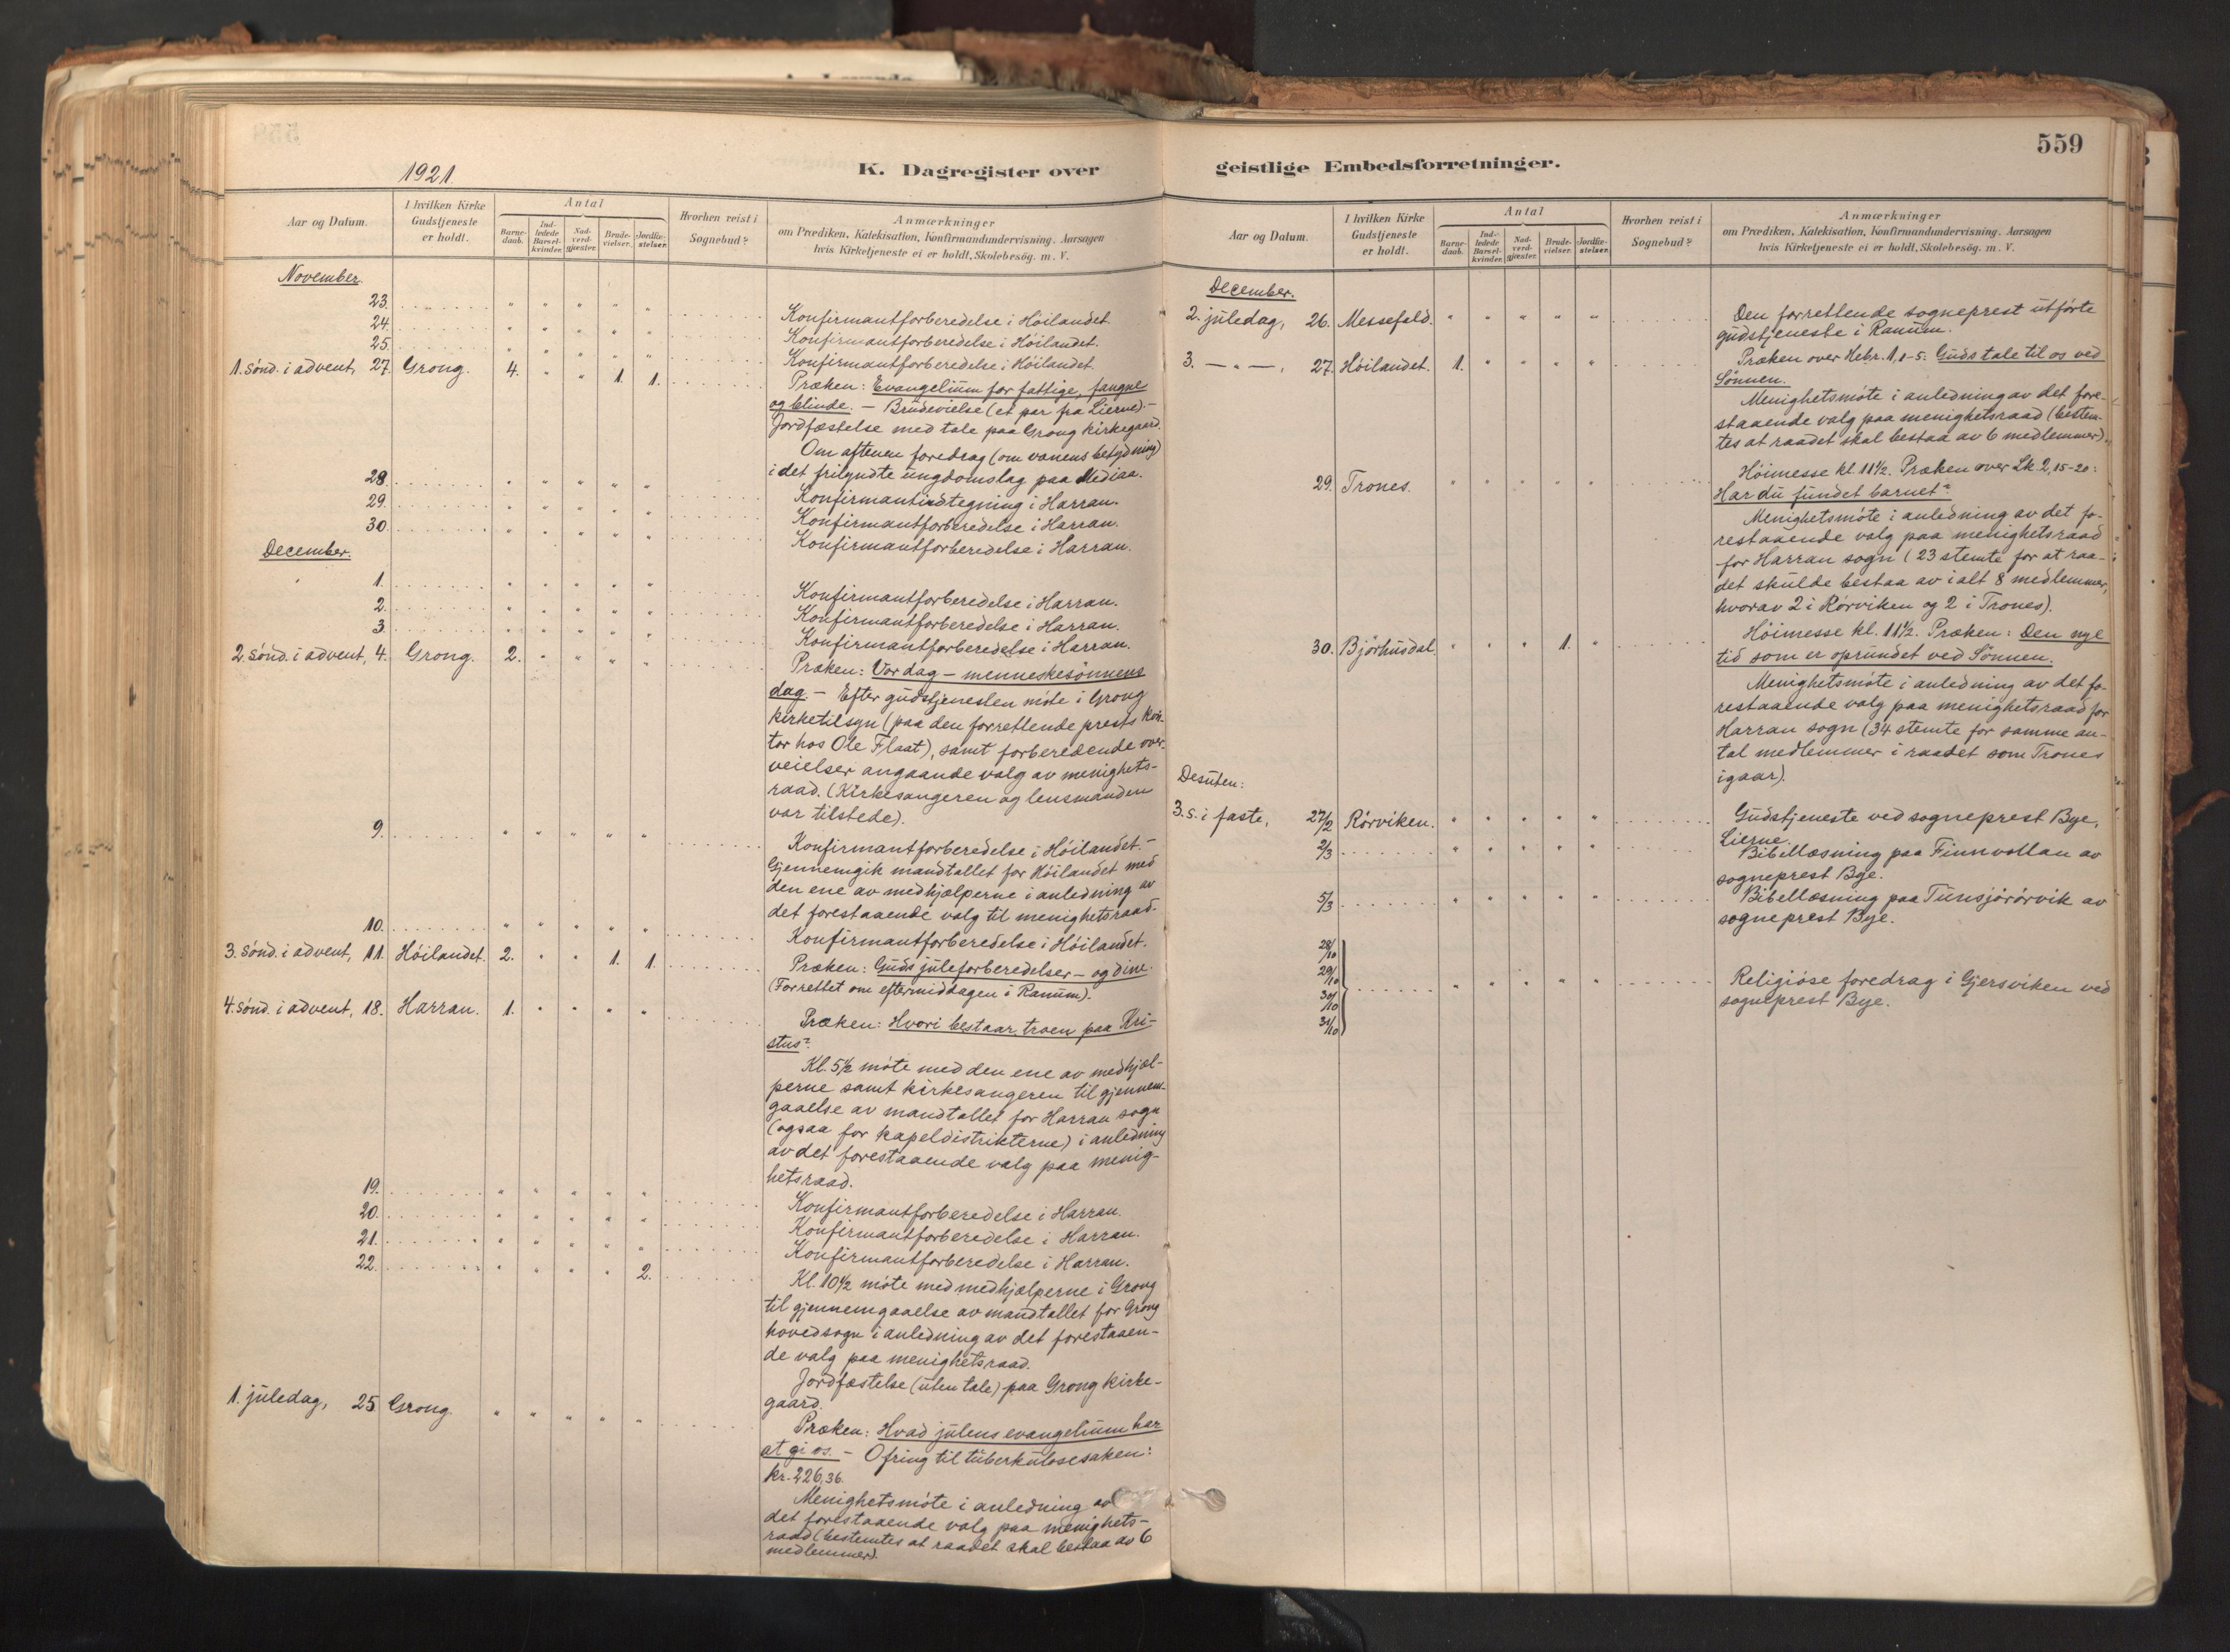 559
1921.
K. Dagregister over
geistlige Embedsforretninger.
Aar og Datum.
I hvilken Kirke Gudstjeneste er holdt.
Antal
Barne-daab.
Ind-ledede Barsel-kvinder.
Nad-verd-gjæster.
Brude-vielser.
Jordfæ-stelser.
Hvorhen reist i Sognebud?
Anmærkninger
om Prædiken, Katekisation, Konfirmandundervisning. Aarsagen
hvis Kirketjeneste ei er holdt, Skolebesög. m. V.
November.
23. " " " " " Konfirmantforberedelse i Höilandet.
24. " " " " " Konfirmantforberedelse i Höilandet.
25. " " " " " Konfirmantforberedelse i Höilandet.
1. sönd. i advent, 27. Grong. 4. " " 1. 1. Præken: Evangelium for fattige, fangne
og blinde. — Brudevielse (et par fra Lierne). —
Jordfæstelse med tale paa Grong kirkegaard.
Om aftenen foredrag (om vanens betydning)
i det frilyndte ungdomslag paa Mediaa.
28. " " " " " Konfirmantindtegning i Harran.
29. " " " " " Konfirmantforberedelse i Harran.
30. " " " " " Konfirmantforberedelse i Harran.
December.
1. " " " " " Konfirmantforberedelse i Harran.
2. " " " " " Konfirmantforberedelse i Harran.
3. " " " " " Konfirmantforberedelse i Harran.
2. sönd. i advent, 4. Grong. 2. " " " " Præken: Vor dag — menneskesönnens
dag. — Efter gudstjenesten möte i Grong
kirketilsyn (paa den forrettende prests kon-
tor hos Ole Flaat), samt forberedende over-
veielser angaaende valg av menighets-
raad. (Kirkesangeren og lensmanden
var tilstede).
9. " " " " " Konfirmantforberedelse i Höilandet. —
Gjennemgik mandtallet for Höilandet med
den ene av medhjælperne i anledning av
det forestaaende valg til menighetsraad.
10. " " " " " Konfirmantforberedelse i Höilandet.
3. sönd. i advent, 11. Höilandet. 2. " " 1. 1. Præken: Guds juleforberedelser — og dine.
(Forrettet om eftermiddagen i Ranum).
4. sönd. i advent, 18. Harran. 1. " " " " Præken: Hvori bestaar troen paa Kri-
stus?
Kl. 5½ möte med den ene av medhjæl-
perne samt kirkesangeren til gjennem-
gaaelse av mandtallet for Harran sogn
(ogsaa for kapeldistrikterne) i anledning
av det forestaaende valg paa menig-
hetsraad.
19. " " " " " Konfirmantforberedelse i Harran.
20. " " " " " Konfirmantforberedelse i Harran.
21. " " " " " Konfirmantforberedelse i Harran.
22. " " " " 2. Kl. 10½ möte med medhjælperne i Grong
til gjennemgaaelse av mandtallet for Grong
hovedsogn i anledning av det forestaaen-
de valg paa menighetsraad.
Jordfæstelse (uten tale) paa Grong kirke-
gaard.
1. juledag, 25. Grong. " " " " " Præken: Hvad julens evangelium har
at gi os. — Ofring til tuberkulosesaken:
kr. 226,36.
Menighetsmöte i anledning av
det forestaaende valg paa menighets-
raad (bestemtes at raadet skal bestaa av 6
medlemmer).
Aar og Datum.
I hvilken Kirke Gudstjeneste er holdt.
Antal
Barne-daab.
Ind-ledede Barsel-kvinder.
Nad-verd-gjæster.
Brude-vielser.
Jordfæ-stelser.
Hvorhen reist i Sognebud?
Anmærkninger
om Prædiken, Katekisation, Konfirmandundervisning. Aarsagen
hvis Kirketjeneste ei er holdt, Skolebesög. m. V.
December.
2. juledag, 26. Messefald. " " " " " Den forrettende sogneprest utförte
gudstjeneste i Ranum.
3. — " —, 27. Höilandet. 1. " " " " Præken over Hebr. 1, 1-5. Guds tale til os ved
Sönnen.
Menighetsmöte i anledning av det fore-
staaende valg paa menighetsraad (bestem-
tes at raadet skal bestaa av 6 medlemmer).
29. Trones. " " " " " Höimesse kl. 11½. Præken over Lk. 2, 15-20:
Har du fundet barnet?
Menighetsmöte i anledning av det fo-
restaaende valg paa menighetsraad
for Harran sogn (23 stemte for at raa-
det skulde bestaa av ialt 8 medlemmer,
hvorav 2 i Rörviken og 2 i Trones).
30. Björhusdal. " " " 1. " Höimesse kl. 11½. Præken: Den nye
tid som er oprundet ved Sönnen.
Menighetsmöte i anledning av det fo-
restaaende valg paa menighetsraad for
Harran sogn (34 stemte for samme an-
tal medlemmer i raadet som Trones
igaar).
Desuten:
3. s. i faste, 27/2 Rörviken. " " " " " Gudstjeneste ved sogneprest Bye,
Lierne.
2/3 " " " " " Bibellæsning paa Finnvollan av
sogneprest Bye.
5/3 " " " " " Bibellæsning paa Tunsjörörvik av
sogneprest Bye.
28/10
29/10
30/10
31/10
" " " " " Religiöse foredrag i Gjersviken ved
sogneprest Bye.